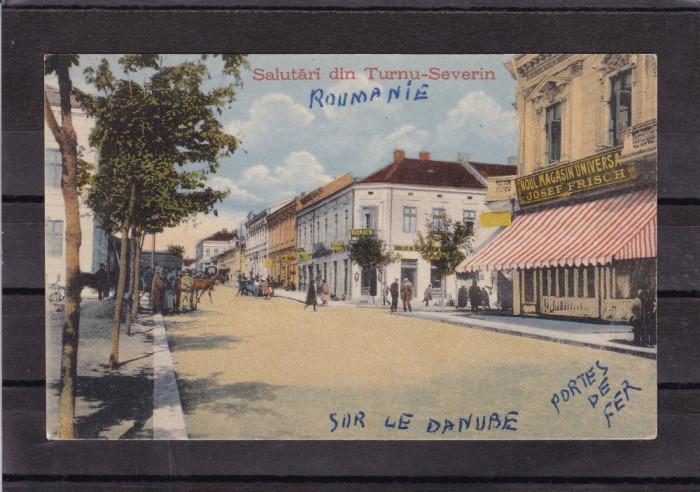 Salutări din Turnu-Severin
ROUMANIE
NOUL MAGASIN UNIVERSA
JOSEF FRISCH
SUR LE DANUBE
PORTES
DE
FER